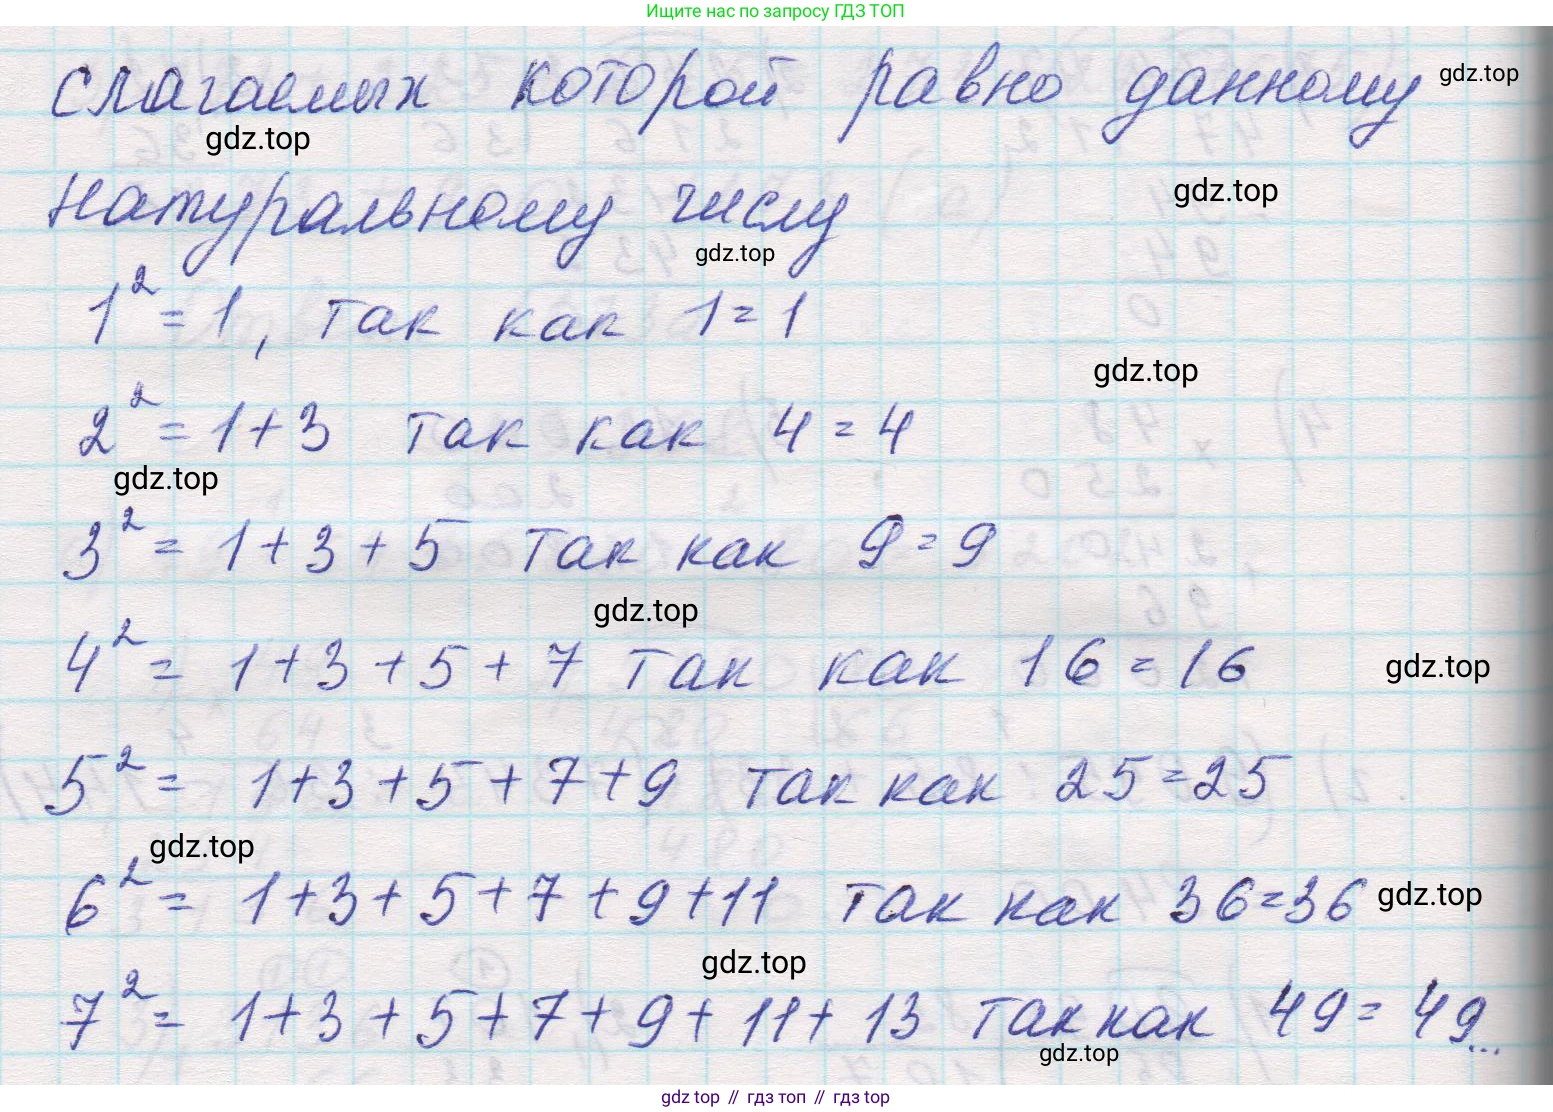 Ищите нас по запросу ГДЗ ТОП
слагаемых которой равно данному gdz.top
gdz.top
натуральному числу gdz.top
gdz.top
1² = 1, так как 1 = 1
gdz.top
2² = 1 + 3 так как 4 = 4
gdz.top
3² = 1 + 3 + 5 так как 9 = 9
gdz.top
4² = 1 + 3 + 5 + 7 так как 16 = 16 gdz.top
5² = 1 + 3 + 5 + 7 + 9 так как 25 = 25
gdz.top
6² = 1 + 3 + 5 + 7 + 9 + 11 так как 36 = 36 gdz.top
gdz.top
7² = 1 + 3 + 5 + 7 + 9 + 11 + 13 так как 49 = 49...
gdz.top
gdz top // гдз топ // гдз top